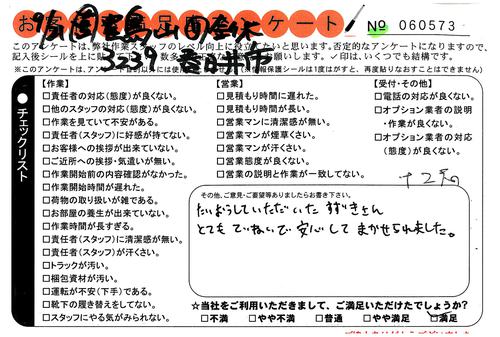 お客 足 ンケート! No 060573
9/5 宝島 山田
3239 春日井市
このアンケートは、弊社作業スタッフのレベル向上に役立てたいと思います。否定的なアンケートになりますので、
記入後シールを上に貼 願いします。✓印は、いくつでも結構です。
【作業】
□責任者の対応(態度)が良くない。
□他のスタッフの対応(態度)が良くない。
□作業を見ていて不安がある。
□責任者(スタッフ)に好感が持てない。
□お客様への挨拶が出来ていない。
□ご近所への挨拶・気遣いが無い。
□作業開始前の内容確認がなかった。
□作業開始時間が遅れた。
□荷物の取り扱いが雑である。
□お部屋の養生が出来ていない。
□作業時間が長すぎる。
□責任者(スタッフ)に清潔感が無い。
□責任者(スタッフ)が汗くさい。
□トラックが汚い。
□梱包資材が汚い。
□運転が不安(下手)である。
□靴下の履き替えをしてない。
□スタッフにやる気がみられない。
【営業】
□見積もり時間に遅れた。
□見積もり時間が長い。
□営業マンに清潔感が無い。
□営業マンが煙草くさい。
□営業マンが汗くさい。
□営業態度が良くない。
□営業の説明と作業が一致してない。
【受付・その他】
□電話の対応が良くない。
□オプション業者の説明
・作業が良くない。
□オプション業者の対応
(態度)が良くない。
●チェックリスト
その他、ご意見・ご要望等ありましたらお書き下さい。
たいおうしていただいた すずきさん
とても ていねいで 安心して まかせられました。
☆当社をご利用いただきまして、ご満足いただけたでしょうか?
□不満 □やや不満 □普通 □やや満足 □満足